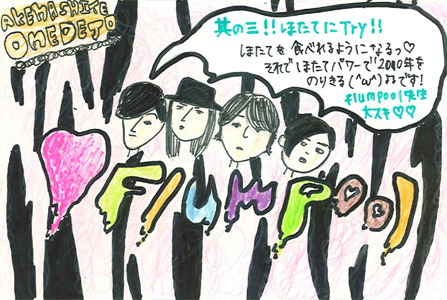 AKEMASHITE
OMEDETO
其の三!!ほたてにTry!!
ほたてを食べれるようになるっ♡
それでほたてパワーで2010年を
のりきる(^ω^)♪です!
flumpool先生
大スキ♡♡
FlUMPOOl